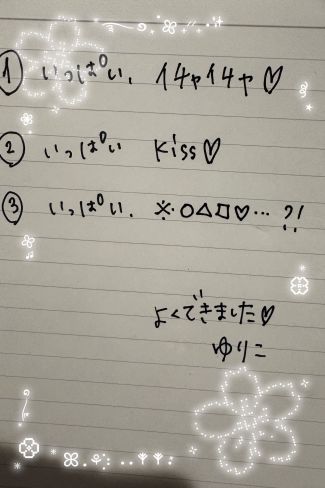 ① いっぱい、イチャイチャ♡
② いっぱい kiss♡
③ いっぱい、※○△□♡…?!
よくできました♡
ゆりこ